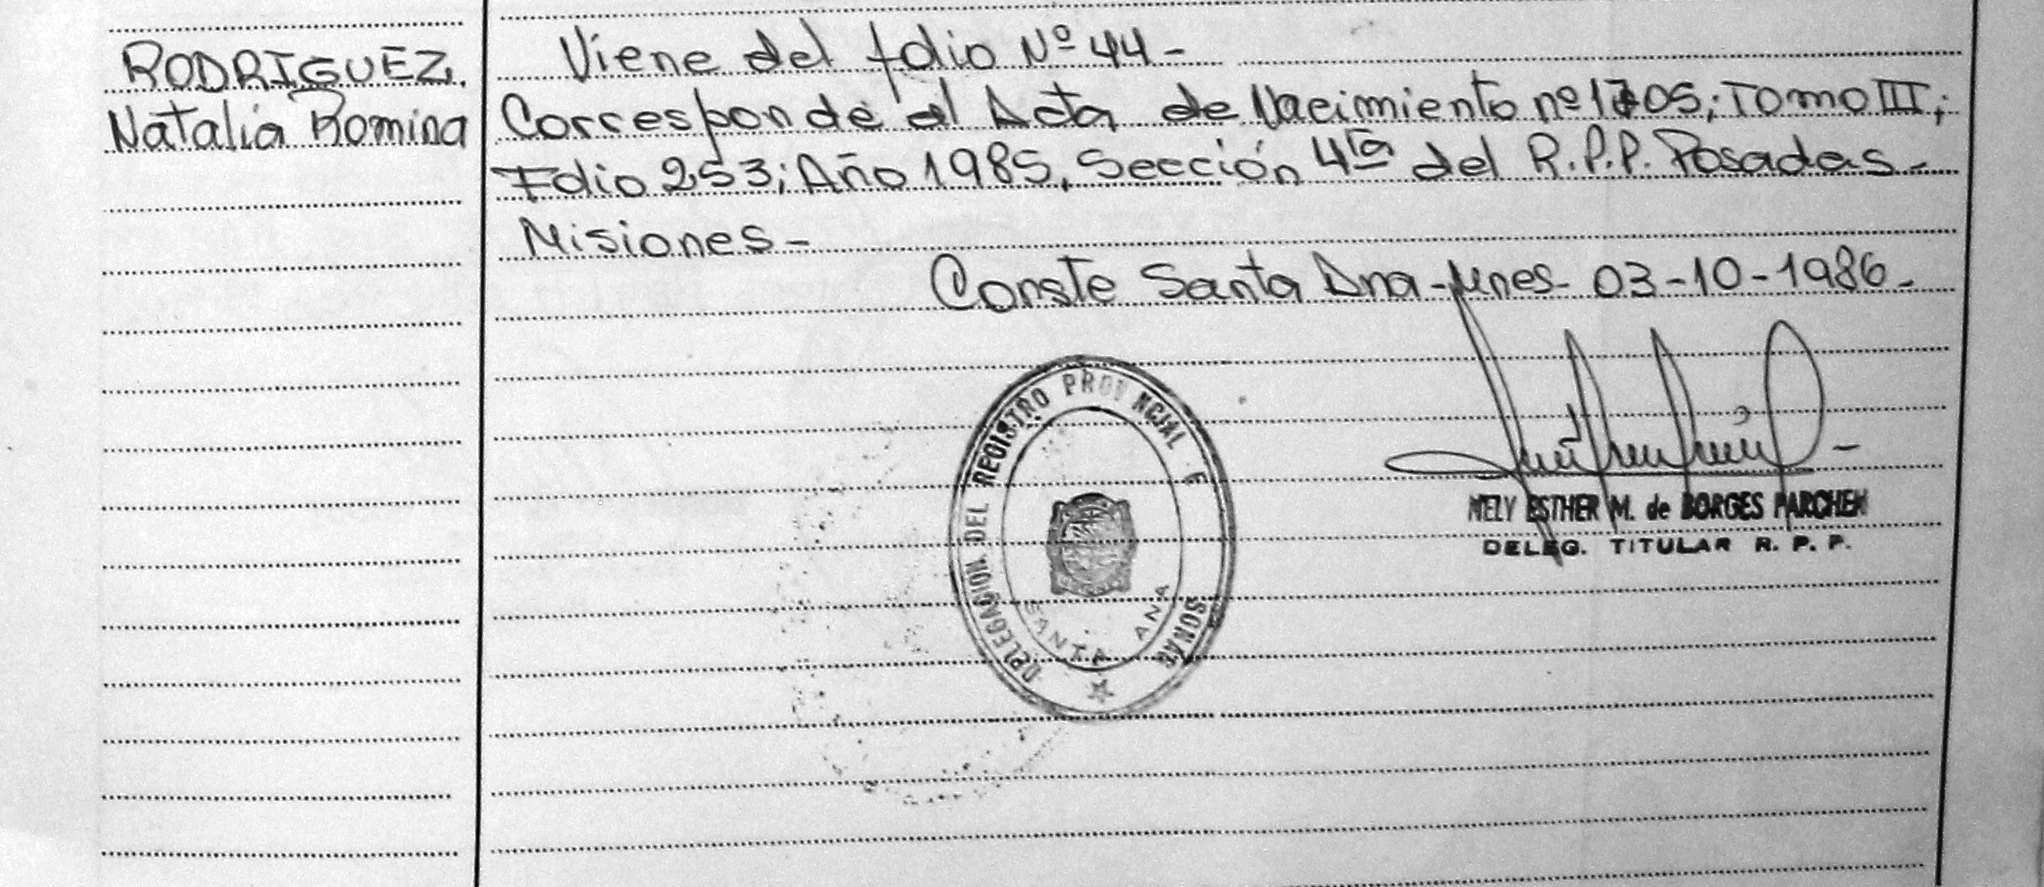 RODRIGUEZ,
Natalia Romina
Viene del folio Nº 44-
Corresponde al Acta de Nacimiento nº 1705; Tomo III;
Folio 253; Año 1985, Sección 4ta del R.P.P. Posadas-
Misiones-
Conste Santa Ana-Mnes- 03-10-1986-
DELEGACION DEL REGISTRO PROVINCIAL
SANTA ANA
NELY ESTHER M. de BORGES PARCHEN
DELEG. TITULAR R. P. P.